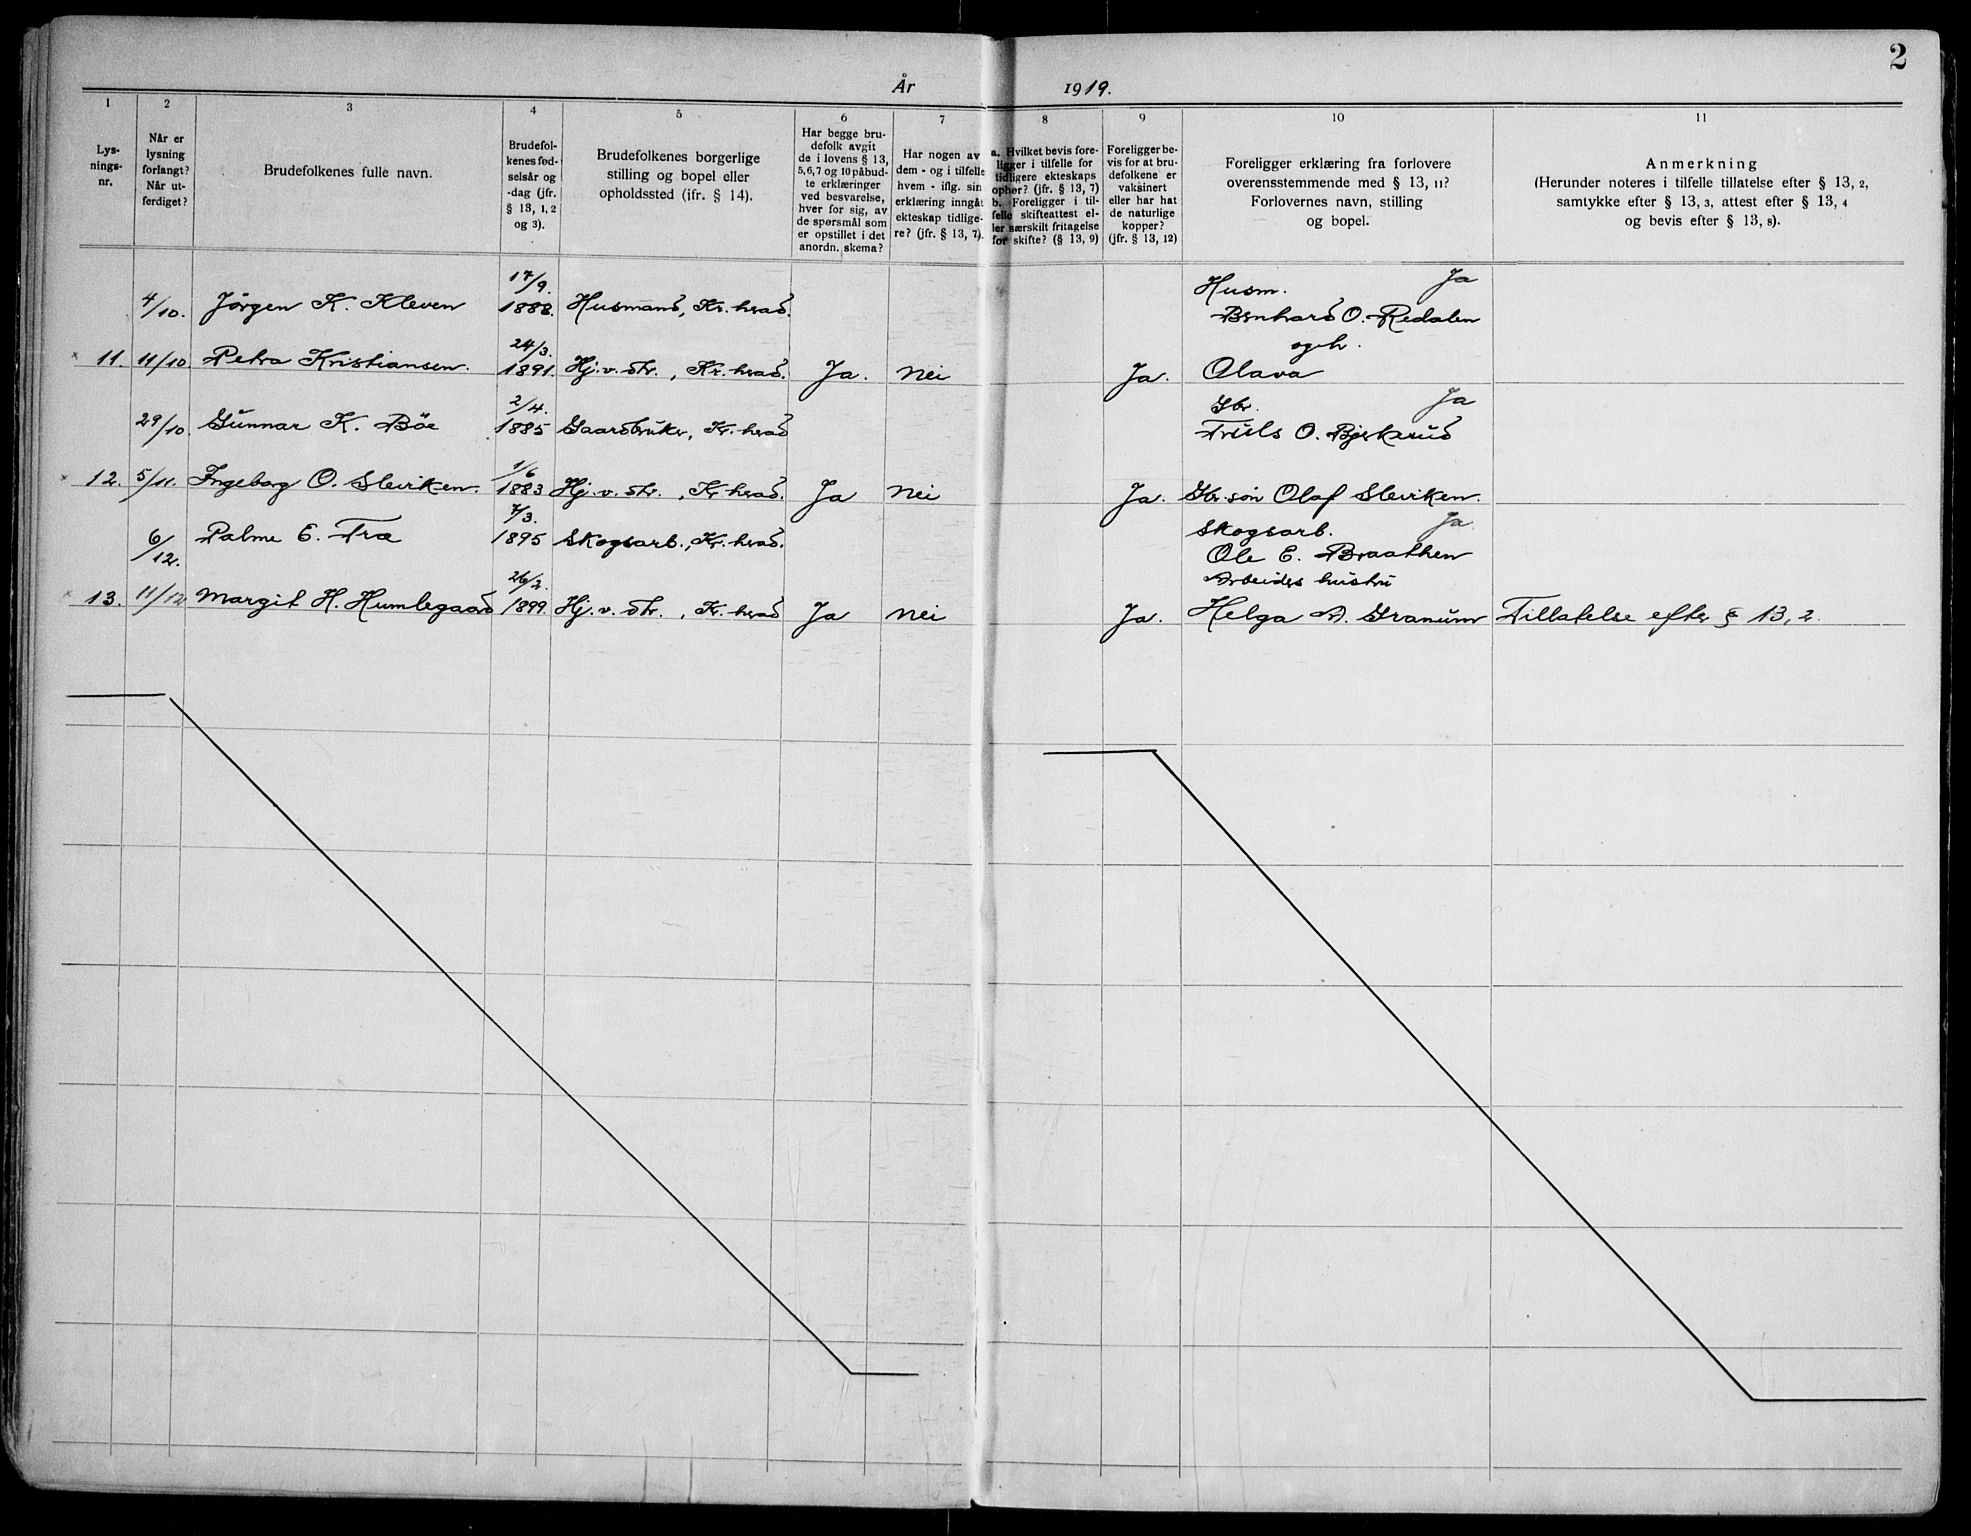 2
År 1919.
1 2 3 4 5 6 7 8 9 10 11
Lys-
nings-
nr.
Når er
lysning
forlangt?
Når ut-
ferdiget?
Brudefolkenes fulle navn.
Brudefol-
kenes fød-
selsår og
-dag (jfr.
§ 13, 1, 2
og 3).
Brudefolkenes borgerlige
stilling og bopel eller
opholdssted (jfr. § 14).
Har begge bru-
defolk avgit
de i lovens § 13,
5, 6, 7 og 10 påbud-
te erklæringer
ved besvarelse,
hver for sig, av
de spørsmål som
er opstillet i det
anordn. skema?
Har nogen av
dem - og i tilfelle
hvem - iflg. sin
erklæring inngåt
ekteskap tidlige-
re? (jfr. § 13, 7).
a. Hvilket bevis fore-
ligger i tilfelle for
tidligere ekteskaps
ophør? (jfr. § 13, 7)
b. Foreligger i til-
felle skifteattest el-
ler særskilt fritagelse
for skifte? (§ 13, 9)
Foreligger be-
vis for at bru-
defolkene er
vaksinert
eller har hat
de naturlige
kopper?
(jfr. § 13, 12)
Foreligger erklæring fra forlovere
overensstemmende med § 13, 11?
Forlovernes navn, stilling
og bopel.
Anmerkning
(Herunder noteres i tilfelle tillatelse efter § 13, 2,
samtykke efter § 13, 3, attest efter § 13, 4
og bevis efter § 13, 8).
17/9.
Husm. Ja
4/10. Jørgen K. Kleven 1888. Husmand, Kr. herad. Bernhard O. Redalen
24/3. og h.
× 11. 11/10. Petra Kristiansen. 1891. Hj. v. dtr., Kr. herad. Ja. Nei Ja. Olava
2/4. Gbr. Ja
29/10. Gunnar K. Böe 1885 Gaardbruker, Kr. herad Truls O. Bjerkerud
1/6
× 12. 5/11. Ingeborg O. Sleviken. 1883 Hj. v. dtr., Kr. herad. Ja Nei Ja. Gbr. søn Olaf Sleviken.
7/3. Skogsarb. Ja
6/12. Palme E. Træ 1895 Skogsarb., Kr. herad. Ole E. Braathen
26/2. Arbeiders hustru
× 13. 11/12 Margit H. Humlegaard 1899. Hj. v. dtr., Kr. herad Ja Nei Ja. Helga A. Granum Tillatelse efter § 13, 2.